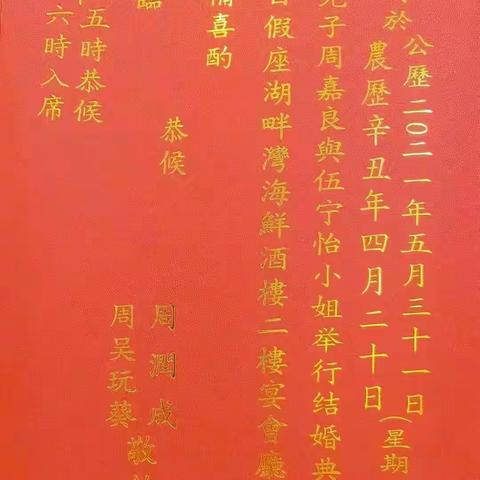 於公歷二〇二一年五月三十一日(星期
農歷辛丑年四月二十日
兒子周嘉良與伍宁怡小姐举行结婚典
假座湖畔灣海鮮酒樓二樓宴會廳
備喜酌
恭候
臨
周潤成
周吳玩葵
敬
五時恭候
六時入席